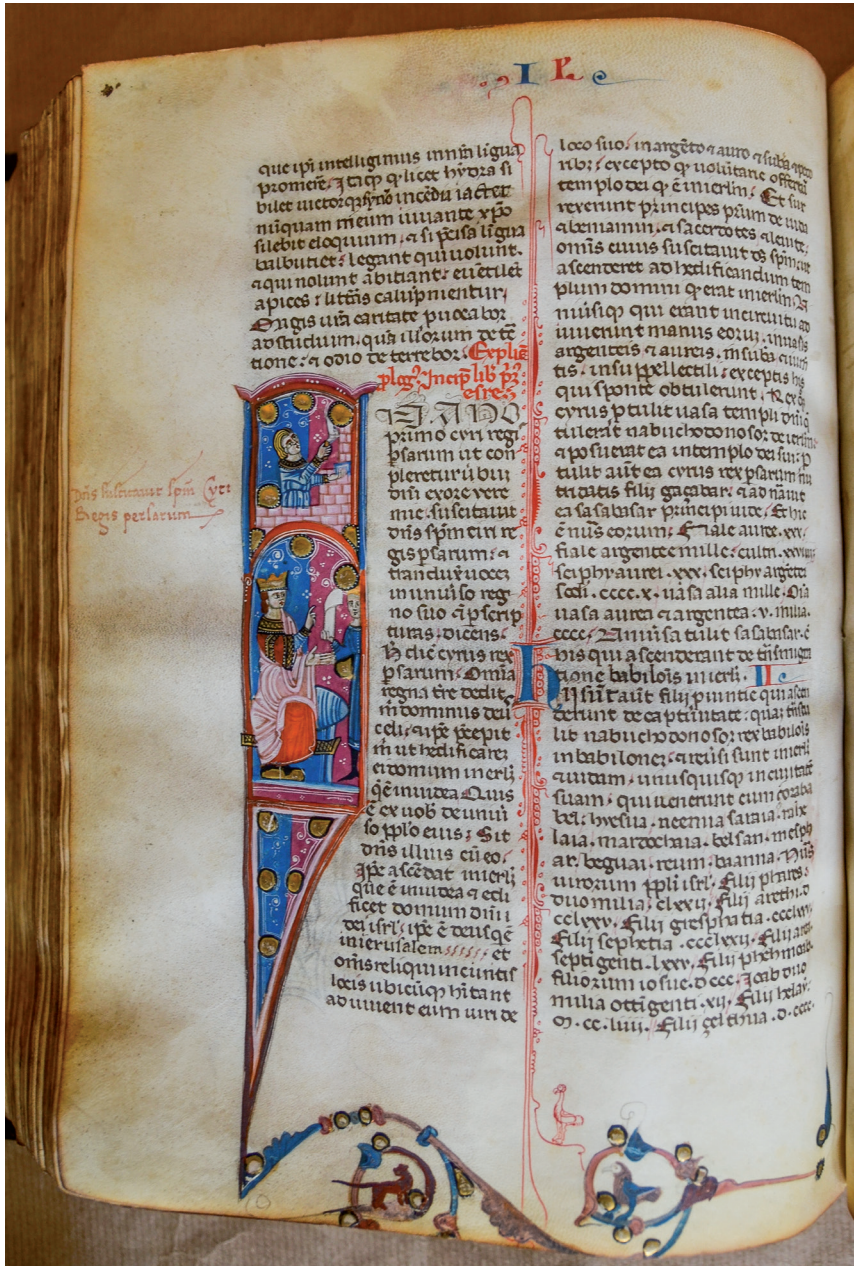 I P
que ipi intelligimus in nrm ligua
promere. Itaq q licet hydra si
bilet uictorq synon incendia iactet
nuquam meum iuuante xpo
silebit eloquium. a si pcisa ligua
balbutiet. legant qui uolunt.
a qui nolunt abitiant. euetilet
apices. litteras calupnientur.
Magis ura caritate puocabor
ad studium. qua illorum detc
tione. a odio deterrebor. Explic
plog. Incip lib pz
esre.
IN ANNO
primo cyri regi
psarum ut con
pleretur ubu
dni exore yere
mie suscitauit
dns spm ciri re
gis psarum. a
tranduxit uocez
in uniuso reg
no suo a p scrip
turas. dicens.
H dic cyrus rex
psarum. Omnia
regna tre dedit
m dominus deu
celi. a ipe pcepit
m ut hedificarez
ei domum in erlz
q e in iudea. Quis
e ex uob de uniu
so pplo eius. Sit
dns illius cu eo.
Ipe ascedat in ierlz
que e in iudea a edi
ficet domum dni i
dei isrl. ipe e deus q e
in ierusalem et
oms reliqui in cuntis
locis ubicuq hitant
adiuuent eum uiri de
Dns suscitauit spm Cyri
Regis persarum
loco suo. in argeto a auro a suba a peco
ribz. excepto q uoluntarie offerut
templo dei q e in ierlm. Et sur
rexerunt principes prum de iuda
a beniamin. a sacerdotes a leuite.
omis cuius suscitauit ds spm ut
ascenderet ad hedificandum tem
plum domini q erat in ierlm.
niuisiq qui erant in circuitu ad
iuuerunt manus eoru. in uasis
argenteis a aureis. in suba a iumen
tis. in suppellectili. exceptis his
qui sponte obtulerunt. Rex q
cyrus ptulit uasa templi dni q
tulerat nabuchodonosor de ierlm
a posuerat ea in templo dei sui. p
tulit aut ea cyrus rex psarum p m
tridatis filii gaçabar. a adnauit
ea sasabasar principi iude. Et hic
e nus eorum. Fiale auree. xxx.
fiale argentee mille. cultri. xxviiii
sciphy aurei. xxx. sciphy argetei
scdi. cccc. x. uasa alia mille. Oia
uasa aurea a argentea. v. milia.
cccc. Uniuisa tulit sasabasar. c
his qui ascenderant de tnsmigra
tione babilois in ierlz. II
Hii sut aut filii puintie qui ascen
derunt de captiuitate. qua tnstu
lit nabuchodonosor rex babilois
in babilonez. a reuisi sunt in ierlz
a iudam. unusquisq in ciuitate
suam. qui uenerunt cum zoroba
bel. hyesua. neemia saraia. rahe
laia. mardochaia. belsan. mesph
ar. beguai. reum. baanna. Nus
uirorum ppli isrl. Filii phares.
duo milia. clxxii. Filii arethi. d
cclxxv. Filii giesphatia. ccclxxii
Filii sephetia. ccclxxii. Filii area
septigenti. lxxv. Filii pheth moab
filiorum iosue. d ccc. Joab duo
milia ottigenti. xii. Filii helam
M. cc. liiii. Filii zelthua. d. cccc.